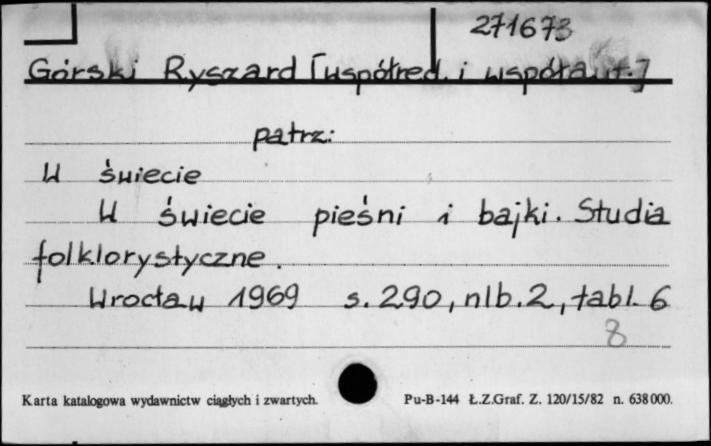 271673
Górski Ryszard [współred. i współaut.]
patrz:
W świecie
W świecie pieśni i bajki. Studia
folklorystyczne.
Wrocław 1969 s. 290, nlb. 2, tabl. 6
8
Karta katalogowa wydawnictw ciągłych i zwartych. Pu-B-144 Ł.Z.Graf. Z. 120/15/82 n. 638000.